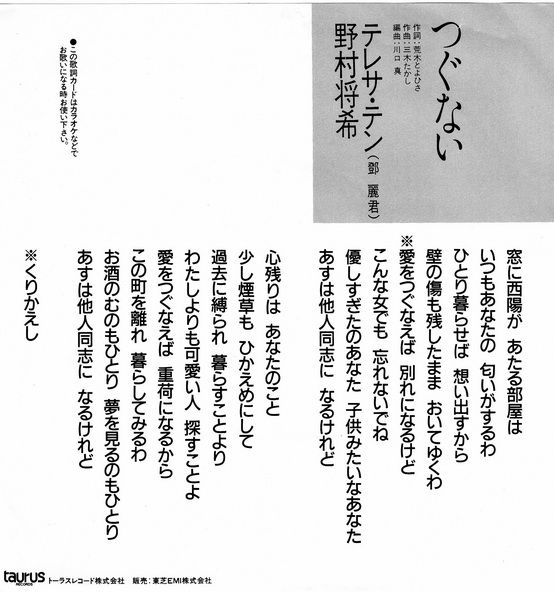 つぐない
作詞：荒木とよひさ
作曲：三木たかし
編曲：川口 真
テレサ・テン（鄧 麗君）
野村将希
●この歌詞カードはカラオケなどで
お歌いになる時お使い下さい。
窓に西陽が あたる部屋は
いつもあなたの 匂いがするわ
ひとり暮らせば 想い出すから
壁の傷も残したまま おいてゆくわ
※愛をつぐなえば 別れになるけど
こんな女でも 忘れないでね
優しすぎたのあなた 子供みたいなあなた
あすは他人同志に なるけれど
心残りは あなたのこと
少し煙草も ひかえめにして
過去に縛られ 暮らすことより
わたしよりも可愛い人 探すことよ
愛をつぐなえば 重荷になるから
この町を離れ 暮らしてみるわ
お酒のむのもひとり 夢を見るのもひとり
あすは他人同志に なるけれど
※くりかえし
taurus
RECORDS
トーラスレコード株式会社 販売：東芝EMI株式会社